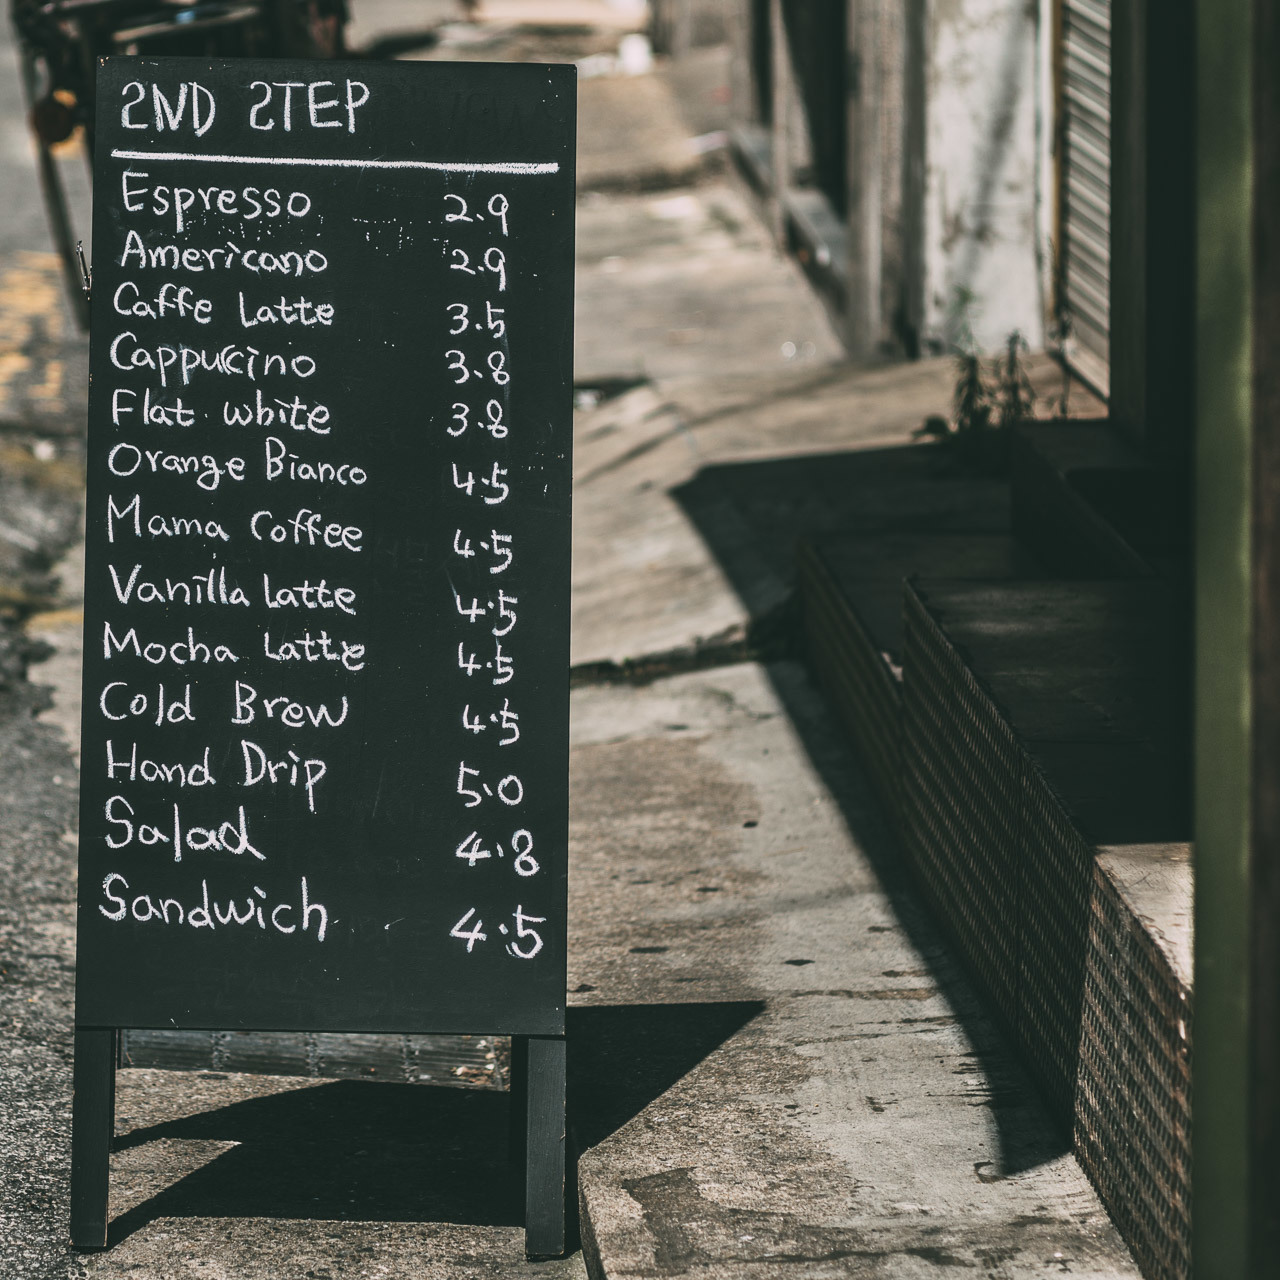 2ND 2TEP
Espresso 2.9
Americano 2.9
Caffe Latte 3.5
Cappuccino 3.8
Flat white 3.8
Orange Bianco 4.5
Mama Coffee 4.5
Vanilla Latte 4.5
Mocha Latte 4.5
Cold Brew 4.5
Hand Drip 5.0
Salad 4.8
Sandwich 4.5